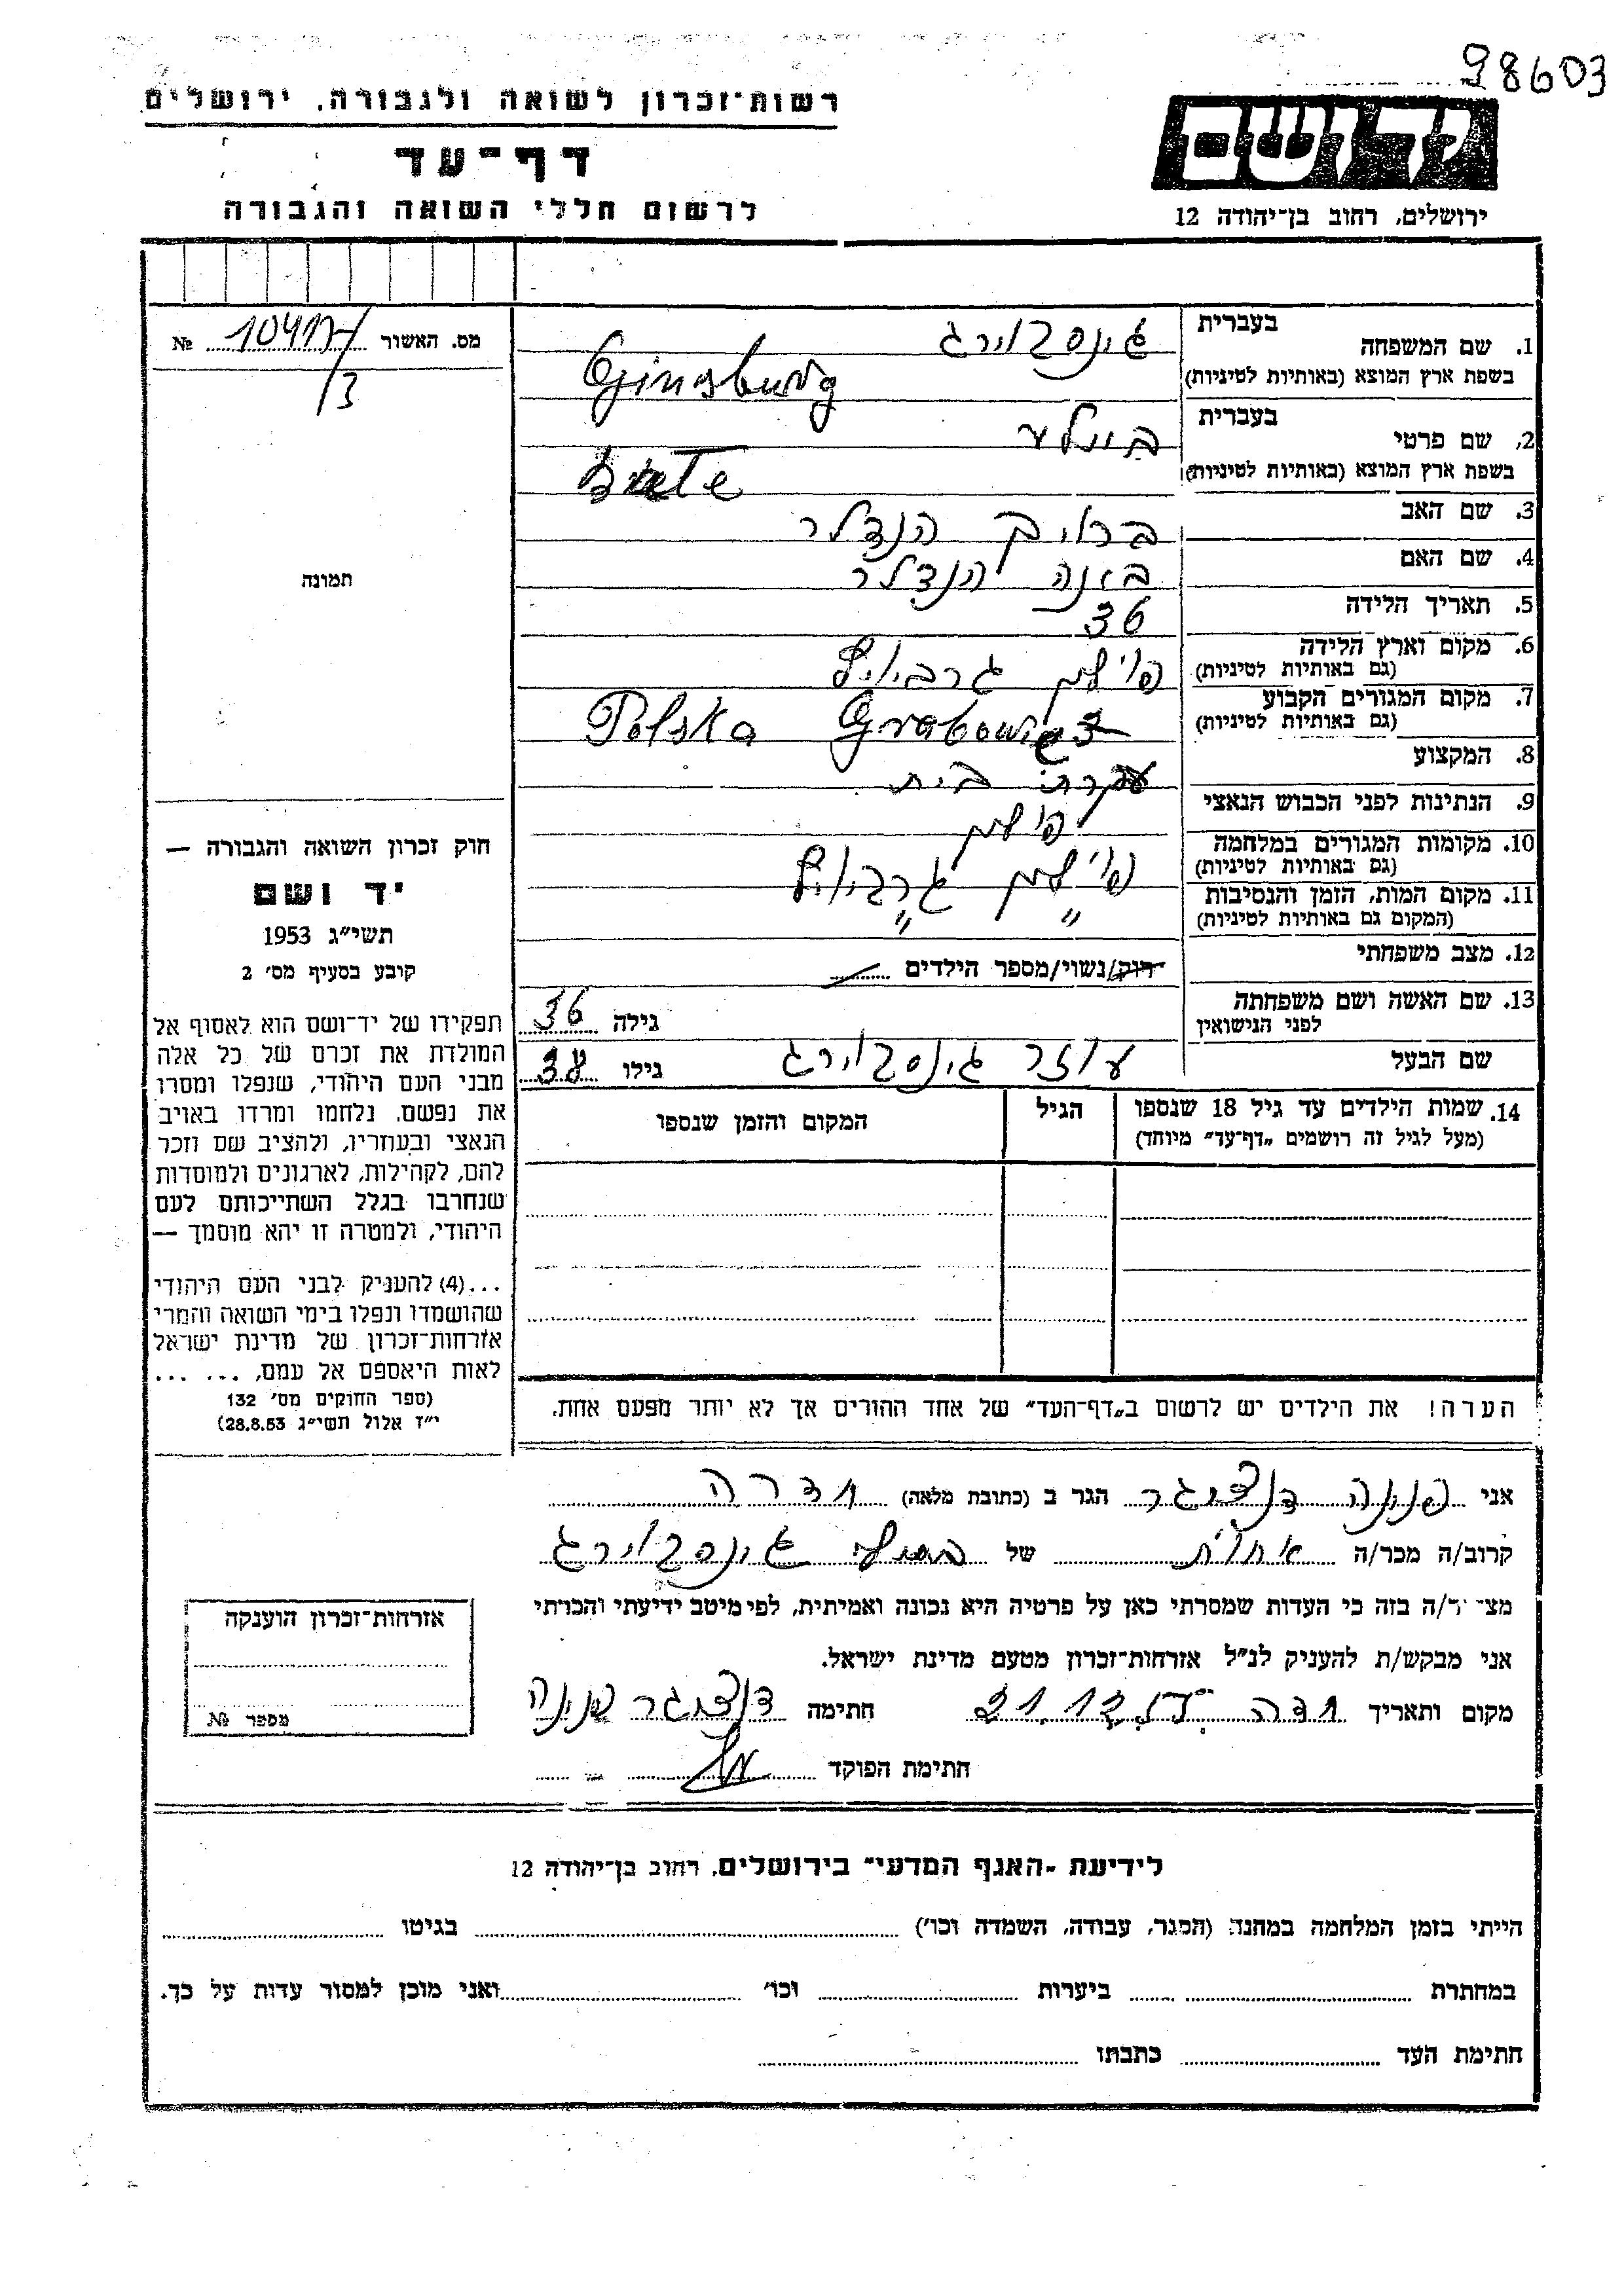 98603
רשות־זכרון לשואה ולגבורה, ירושלים
דף־עד
לרשום חללי השואה והגבורה
יד ושם
ירושלים, רחוב בן־יהודה 12
מס. האשור № 10417/3
תמונה
1. שם המשפחה בעברית גינסבוירג
בשפת ארץ המוצא (באותיות לטיניות) Ginsburg
2. שם פרטי בעברית ביילע
בשפת ארץ המוצא (באותיות לטיניות)
3. שם האב ברוך הנדלר
4. שם האם הנדלר
5. תאריך הלידה 36
6. מקום וארץ הלידה
(גם באותיות לטיניות) פוילין
7. מקום המגורים הקבוע
(גם באותיות לטיניות) Polska Grabowiec
8. המקצוע עקרת בית
9. הנתינות לפני הכבוש הנאצי פולין
10. מקומות המגורים במלחמה
(גם באותיות לטיניות) פוילין
11. מקום המות, הזמן והנסיבות
(המקום גם באותיות לטיניות) " "
12. מצב משפחתי רווק/נשוי/מספר הילדים
13. שם האשה ושם משפחתה
לפני הנישואין גילה 36
שם הבעל עוזר גינסבוירג גילו 38
14. שמות הילדים עד גיל 18 שנספו הגיל המקום והזמן שנספו
(מעל לגיל זה רושמים „דף־עד” מיוחד)
הערה! את הילדים יש לרשום ב„דף־העד” של אחד ההורים אך לא יותר מפעם אחת.
חוק זכרון השואה והגבורה —
יד ושם
תשי״ג 1953
קובע בסעיף מס׳ 2
תפקידו של יד־ושם הוא לאסוף אל
המולדת את זכרם של כל אלה
מבני העם היהודי, שנפלו ומסרו
את נפשם, נלחמו ומרדו באויב
הנאצי ובעוזריו, ולהציב שם וזכר
להם, לקהילות, לארגונים ולמוסדות
שנחרבו בגלל השתייכותם לעם
היהודי, ולמטרה זו יהא מוסמך —
...(4) להעניק לבני העם היהודי
שהושמדו ונפלו בימי השואה והמרי
אזרחות־זכרון של מדינת ישראל
לאות היאספם אל עמם, ... ...
(ספר החוקים מס׳ 132
י״ז אלול תשי״ג 28.8.53)
אני פנינה דנציגר הגר ב (כתובת מלאה) חדרה
קרוב/ה מכר/ה אחות של גינסבוירג
מצהיר/ה בזה כי העדות שמסרתי כאן על פרטיה היא נכונה ואמיתית, לפי מיטב ידיעתי והכרתי
אני מבקש/ת להעניק לנ״ל אזרחות־זכרון מטעם מדינת ישראל.
מקום ותאריך חדרה חתימה דנציגר פנינה
חתימת הפוקד
אזרחות־זכרון הוענקה
מספר №
לידיעת „האגף המדעי” בירושלים, רחוב בן־יהודה 12
הייתי בזמן המלחמה במחנה (הסגר, עבודה, השמדה וכו׳) בגיטו
במחתרת ביערות וכו׳ ואני מוכן למסור עדות על כך.
חתימת העד כתבתו